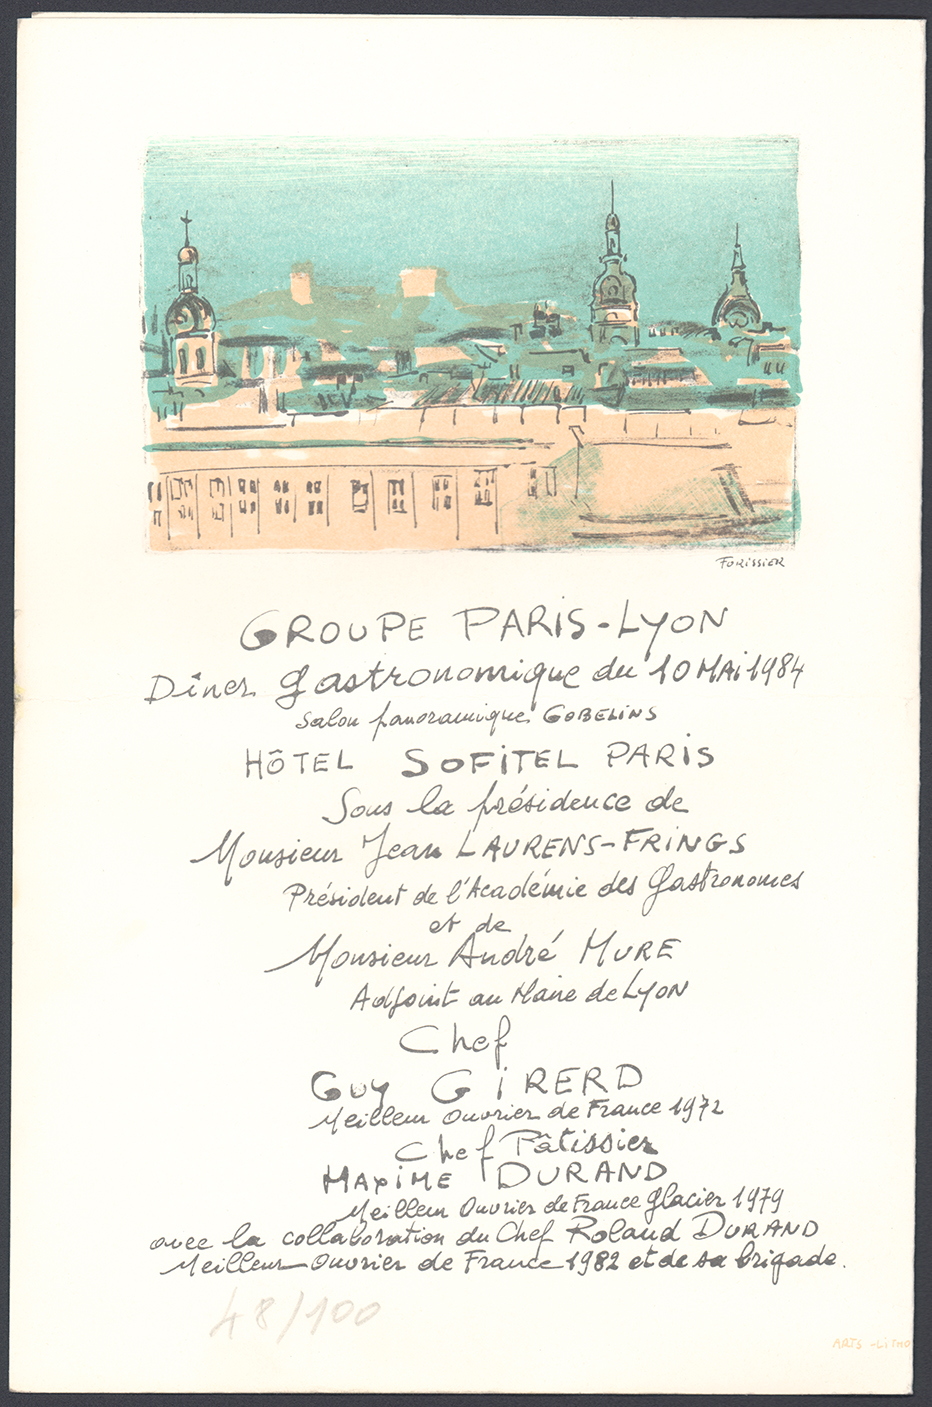 FORISSIER
GROUPE PARIS-LYON
Dîner gastronomique du 10 MAI 1984
Salon panoramique GOBELINS
HÔTEL SOFITEL PARIS
Sous la présidence de
Monsieur Jean LAURENS-FRINGS
Président de l'Académie des gastronomes
et de
Monsieur André MURE
Adjoint au Maire de LYON
Chef
GUY GIRERD
Meilleur Ouvrier de France 1972
Chef Pâtissier
MAXIME DURAND
Meilleur Ouvrier de France glacier 1979
avec la collaboration du Chef Roland DURAND
Meilleur Ouvrier de France 1982 et de sa brigade.
48/100
ARTS-LITHO